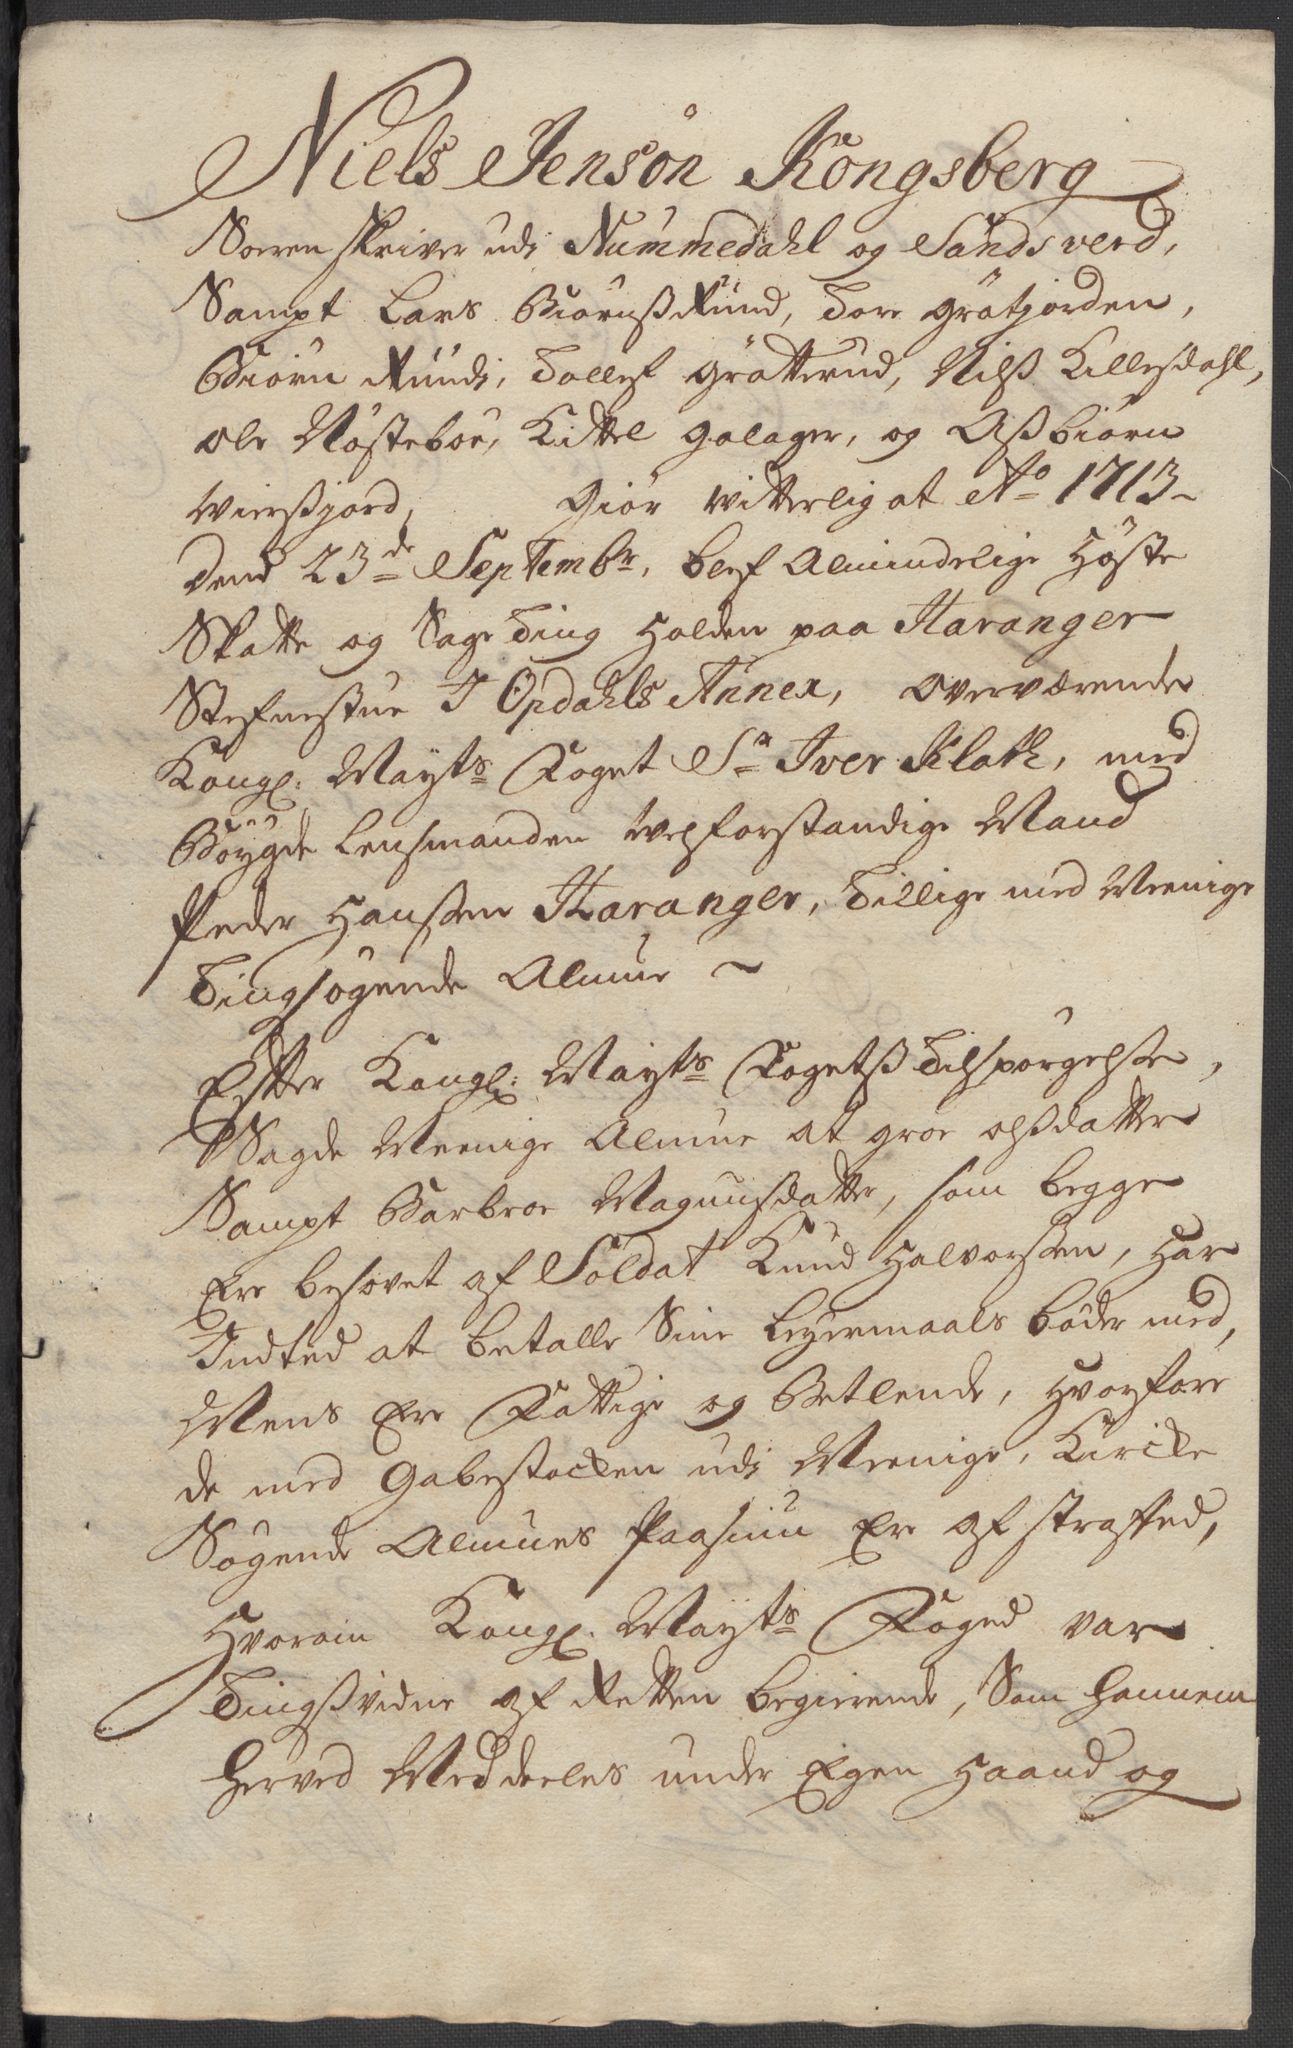 Niels Jensøn Kongsberg
Soren skriver udi Nummedahl og Sandsverd,
Sampt Lars Biørnß Rund, Tore Grøtjorden,
Biørn Rundi, Tollef Grøtterud, Nilß Killesdahl,
Ole Nøsteboe, Kittel Galager, og Aßbiørn
Wierßjord, Giør witterlig at Ao 1713
dend 23de Septembr, blef Almindelige Høste
Skatte og Sage Ting Holden paa Haranger
Stefnestue I Opdahls Annex, Overværende
Kongl: Mayts Foget Sr Iver Klath, med
Böygde Lensmanden welforstandige Mand
Peder Hanßen Haranger, Tillige med Meenige
Tingsøgende Almue ~
Efter Kongl: Mayts Fogetß Tilspørgelse,
Sagde Meenige Almue at Groe Olßdatter
Sampt Barbroe Magnusdatter, som begge
Ere besovet af Soldat Knud Halvorßen, Har
Indted at betalle Sine Leyermaals bøder med,
Mens Ere Fattige og Betlende, Hvorfore
de med Gabestocken udi Meenige, Kircke
Søgende Almues Paasiun Ere afstraffed,
Hvorom Kongl. Mayts Foged var
Tingßvidne af Retten begierende, Som hannem
herved Meddeeles under Egen Haand og